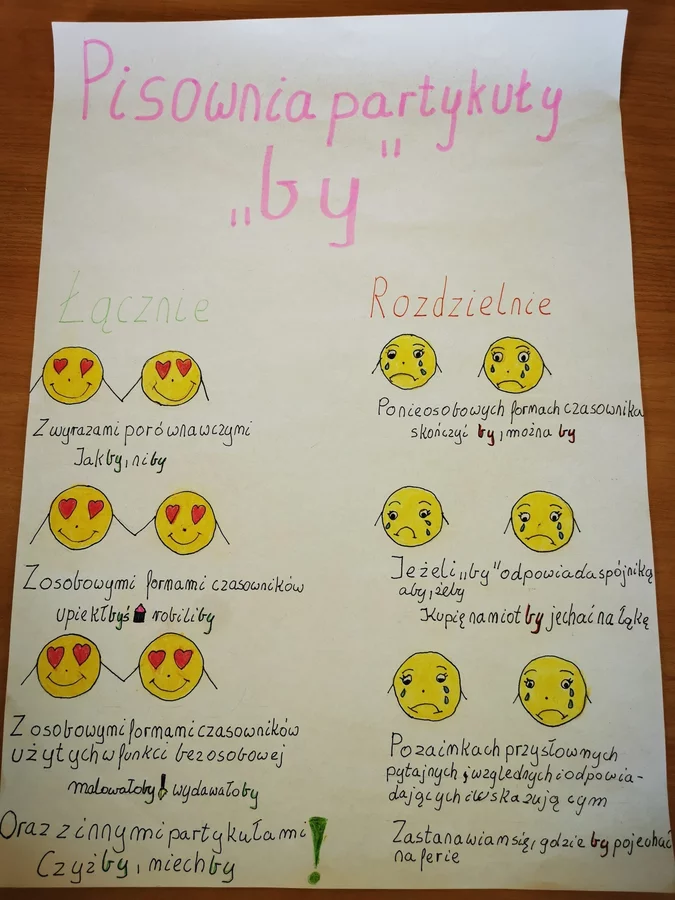 Pisownia partykuły
„by"
Łącznie
Z wyrazami porównawczymi
Jakby, niby
Z osobowymi formami czasowników
upiekłbyś robiliby
Z osobowymi formami czasowników
użytych w funkci bezosobowej
malowałoby wydawałoby
Oraz z innymi partykułami !
Czyżby, miechby
Rozdzielnie
Po nieosobowych formach czasownika
skończyć by, można by
Jeżeli „by" odpowiada spójniką
aby, żeby
Kupię namiot by jechać na łąkę
Po zaimkach przysłownych
pytajnych i względnych i odpowia-
dających i wskazującym
Zastanawiam się, gdzie by pojechać
na ferie